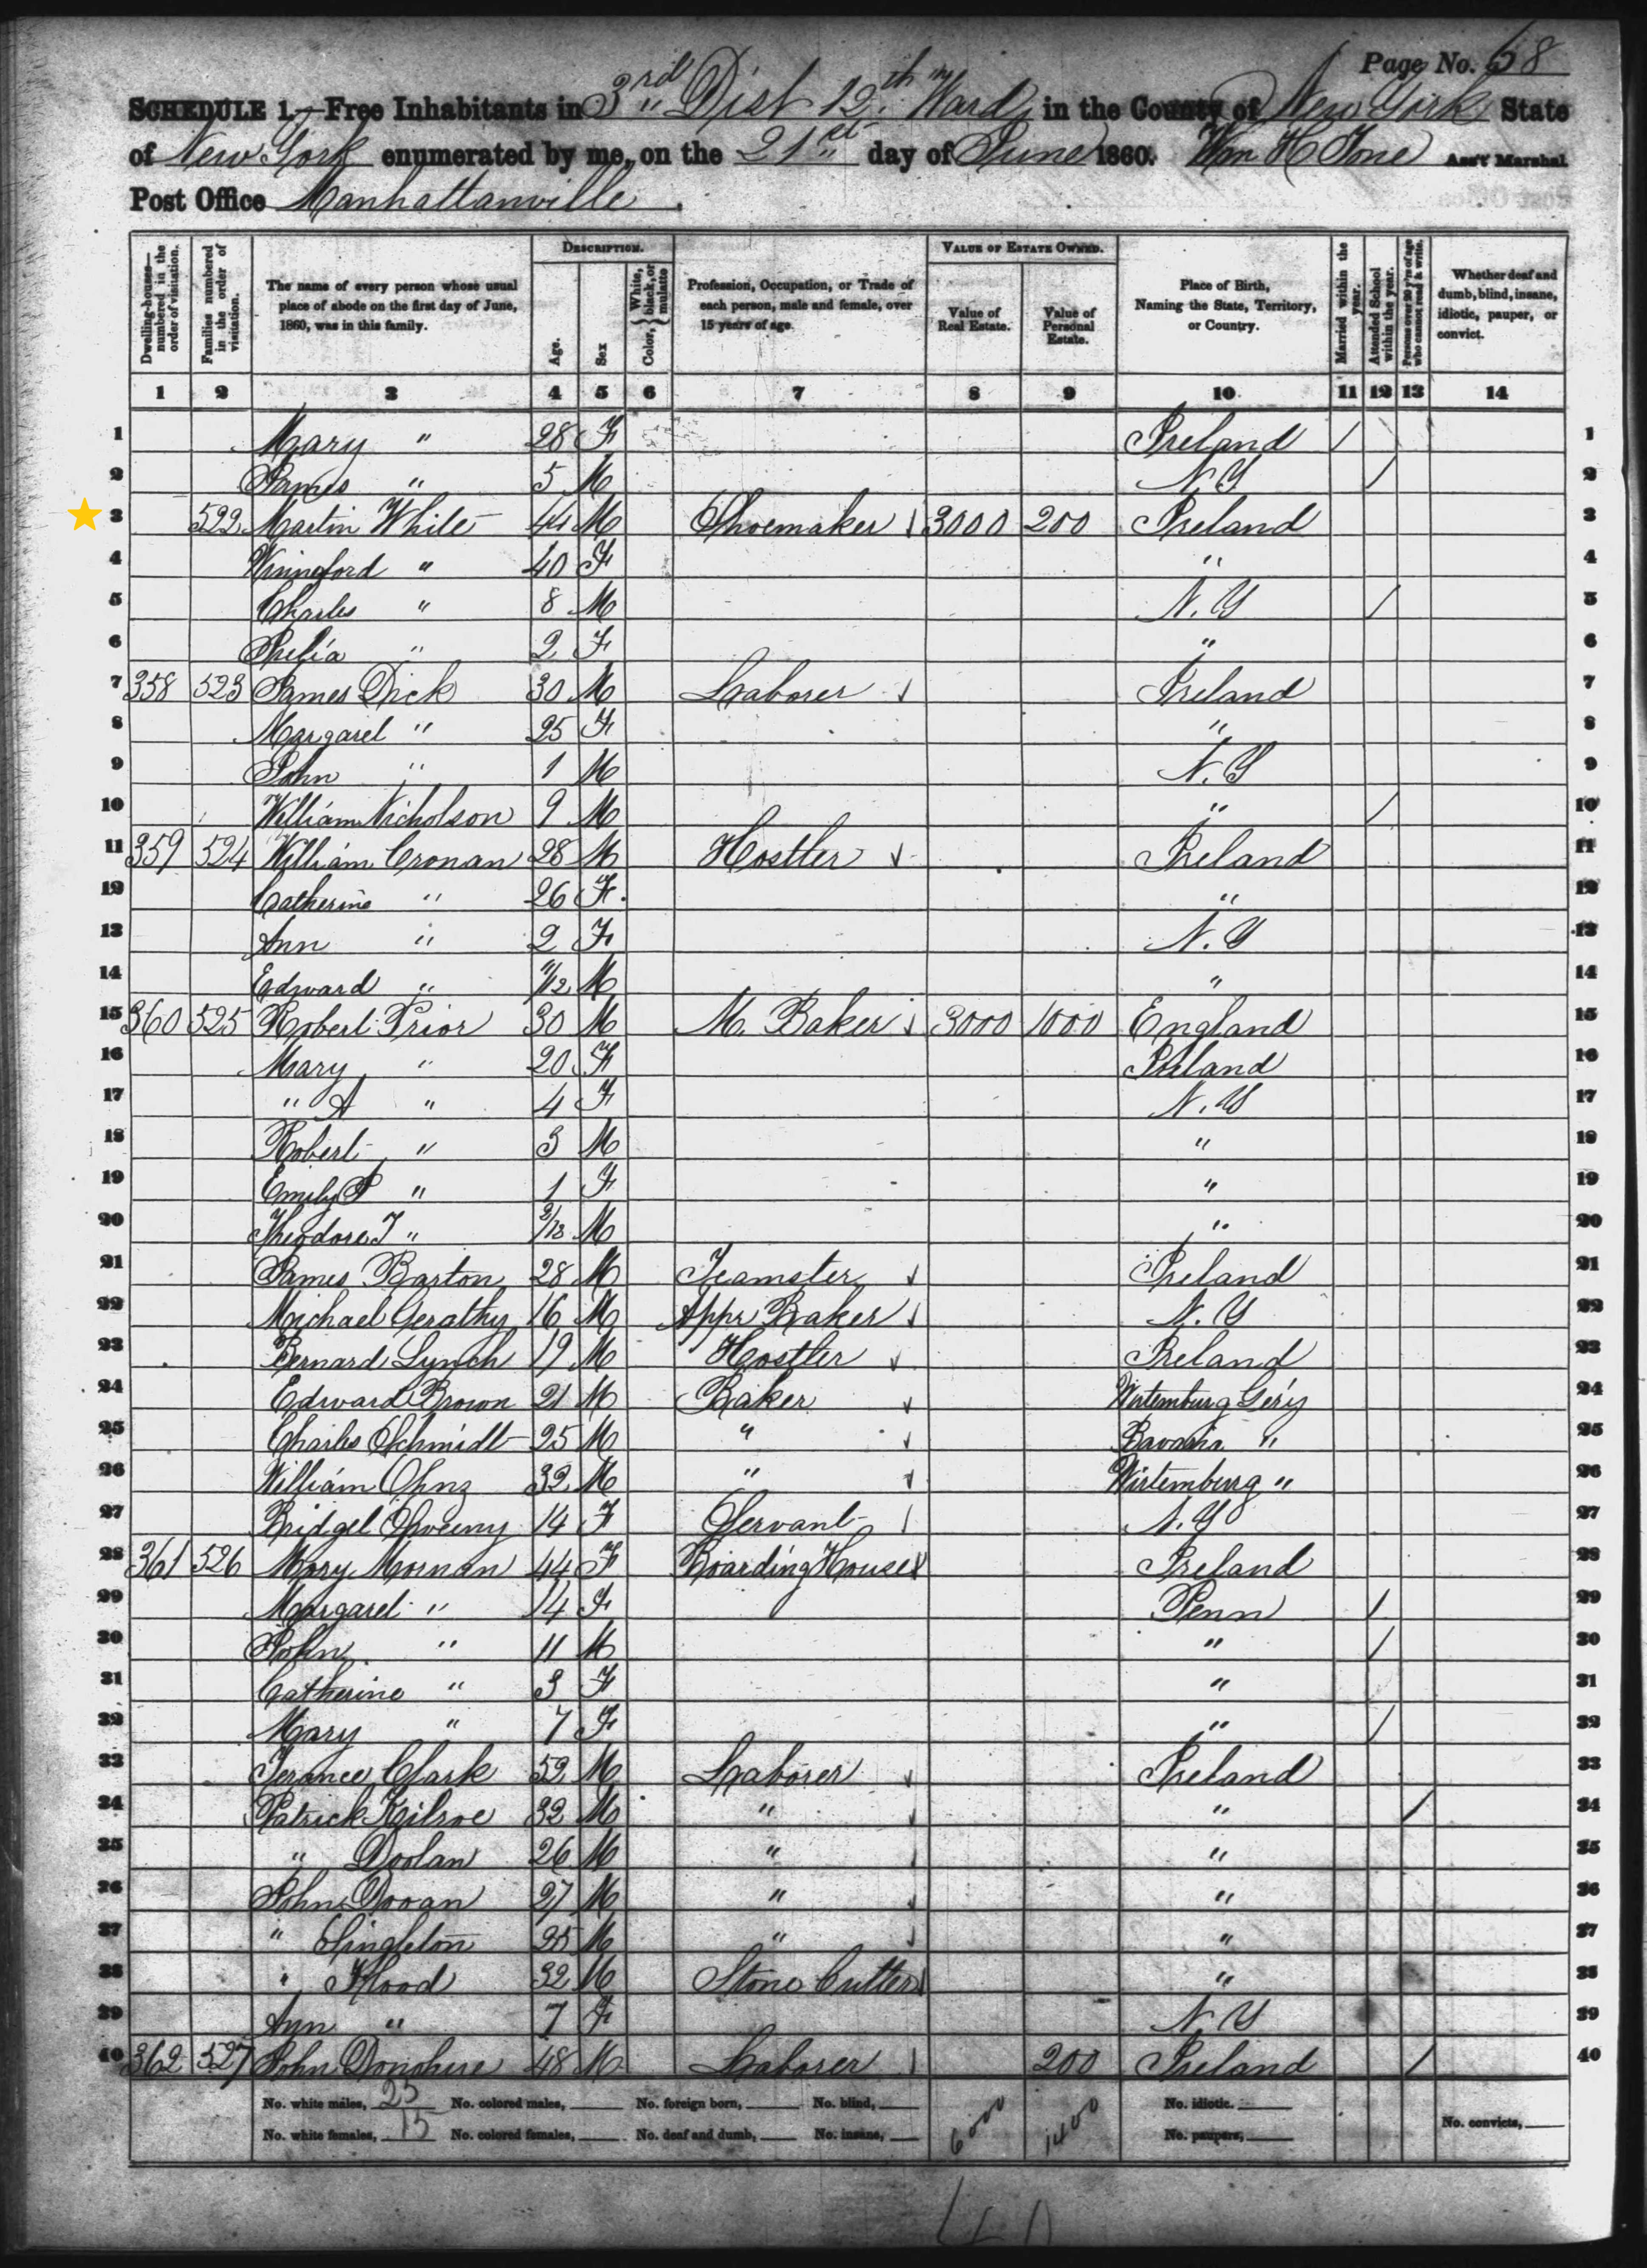 Page No. 68
SCHEDULE 1.—Free Inhabitants in 3rd Dist 12th Ward in the County of New York State
of New York enumerated by me, on the 21st day of June 1860. Wm H Tone Ass't Marshal
Post Office Manhattanville
Dwelling-houses—numbered in the order of visitation.
Families numbered in the order of visitation.
The name of every person whose usual place of abode on the first day of June, 1860, was in this family.
DESCRIPTION.
Age.
Sex
Color, White, black, or mulatto
Profession, Occupation, or Trade of each person, male and female, over 15 years of age.
VALUE OF ESTATE OWNED.
Value of Real Estate.
Value of Personal Estate.
Place of Birth, Naming the State, Territory, or Country.
Married within the year.
Attended School within the year.
Persons over 20 y'rs of age who cannot read & write.
Whether deaf and dumb, blind, insane, idiotic, pauper, or convict.
1 2 3 4 5 6 7 8 9 10 11 12 13 14
1 Mary " 28 F Ireland / 1
2 James " 5 M N.Y / 2
3 522 Martin White 44 M Shoemaker 3000 200 Ireland 3
4 Winneford " 40 F " 4
5 Charles " 8 M N.Y / 5
6 " 2 F " 6
7 358 523 James Dick 30 M Laborer Ireland 7
8 Margaret " 25 F " 8
9 John " 1 M N.Y 9
10 William Nicholson 9 M " / 10
11 359 524 William Cronan 28 M Hostler Ireland 11
12 Catherine " 26 F " 12
13 Ann " 2 F N.Y 13
14 Edward " M " 14
15 360 525 Robert Prior 30 M M. Baker 3000 1000 England 15
16 Mary " 20 F Ireland 16
17 " A " 4 F N.Y 17
18 Robert " 3 M " 18
19 Emily P " 1 F " 19
20 Theodore T " M " 20
21 James Barton 28 M Teamster Ireland 21
22 Michael Gerathy 16 M Appr Baker N.Y 22
23 Bernard Lynch 19 M Hostler Ireland 23
24 Edward Brown 21 M Baker Wirtemburg Ger'y 24
25 Charles Schmidt 25 M " Bavaria " 25
26 William 32 M " Wirtemburg " 26
27 Bridget Sweeny 14 F Servant N.Y 27
28 361 526 Mary 44 F Boarding House Ireland 28
29 Margaret " 14 F Penn / 29
30 John " 11 M " / 30
31 Catherine " 3 F " 31
32 Mary " 7 F " / 32
33 Terance Clark 52 M Laborer Ireland 33
34 Patrick Gilroe 32 M " " / 34
35 " Doolan 26 M " " 35
36 John 27 M " " 36
37 " Singleton 25 M " " 37
38 " Flood 32 M Stone Cutter " 38
39 Ann " 7 F N.Y 39
40 362 527 John Donohue 48 M Laborer 200 Ireland / 40
No. white males, 25 No. colored males, No. foreign born, No. blind, 6000 1400 No. idiotic.
No. white females, 15 No. colored females, No. deaf and dumb, No. insane, No. paupers, No. convicts,